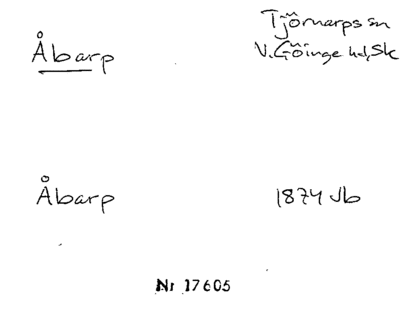 Åbarp
Tjörnarps sn
V. Göinge hd, Sk
Åbarp
1874 Jb
Nr 17605